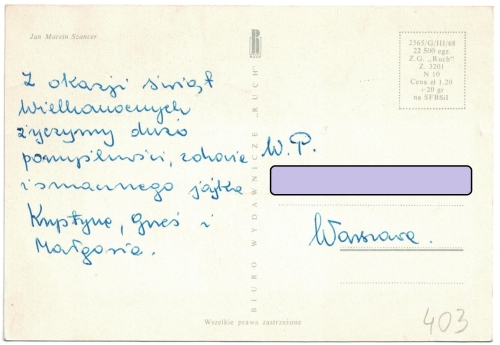 Jan Marcin Szancer
Z okazji świąt
Wielkanocnych
życzymy dużo
pomyślności, zdrowie
i smacznego jajka
Krystyna, Grześ i
Małgosia.
BIURO WYDAWNICZE „RUCH"
2565/G/III/68
22 500 egz.
Z.G. „Ruch"
Z. 3201
N 10
Cena zł 1.20
+ 20 gr
na SFBSiI
W.P.
Warszawa.
Wszelkie prawa zastrzeżone
403